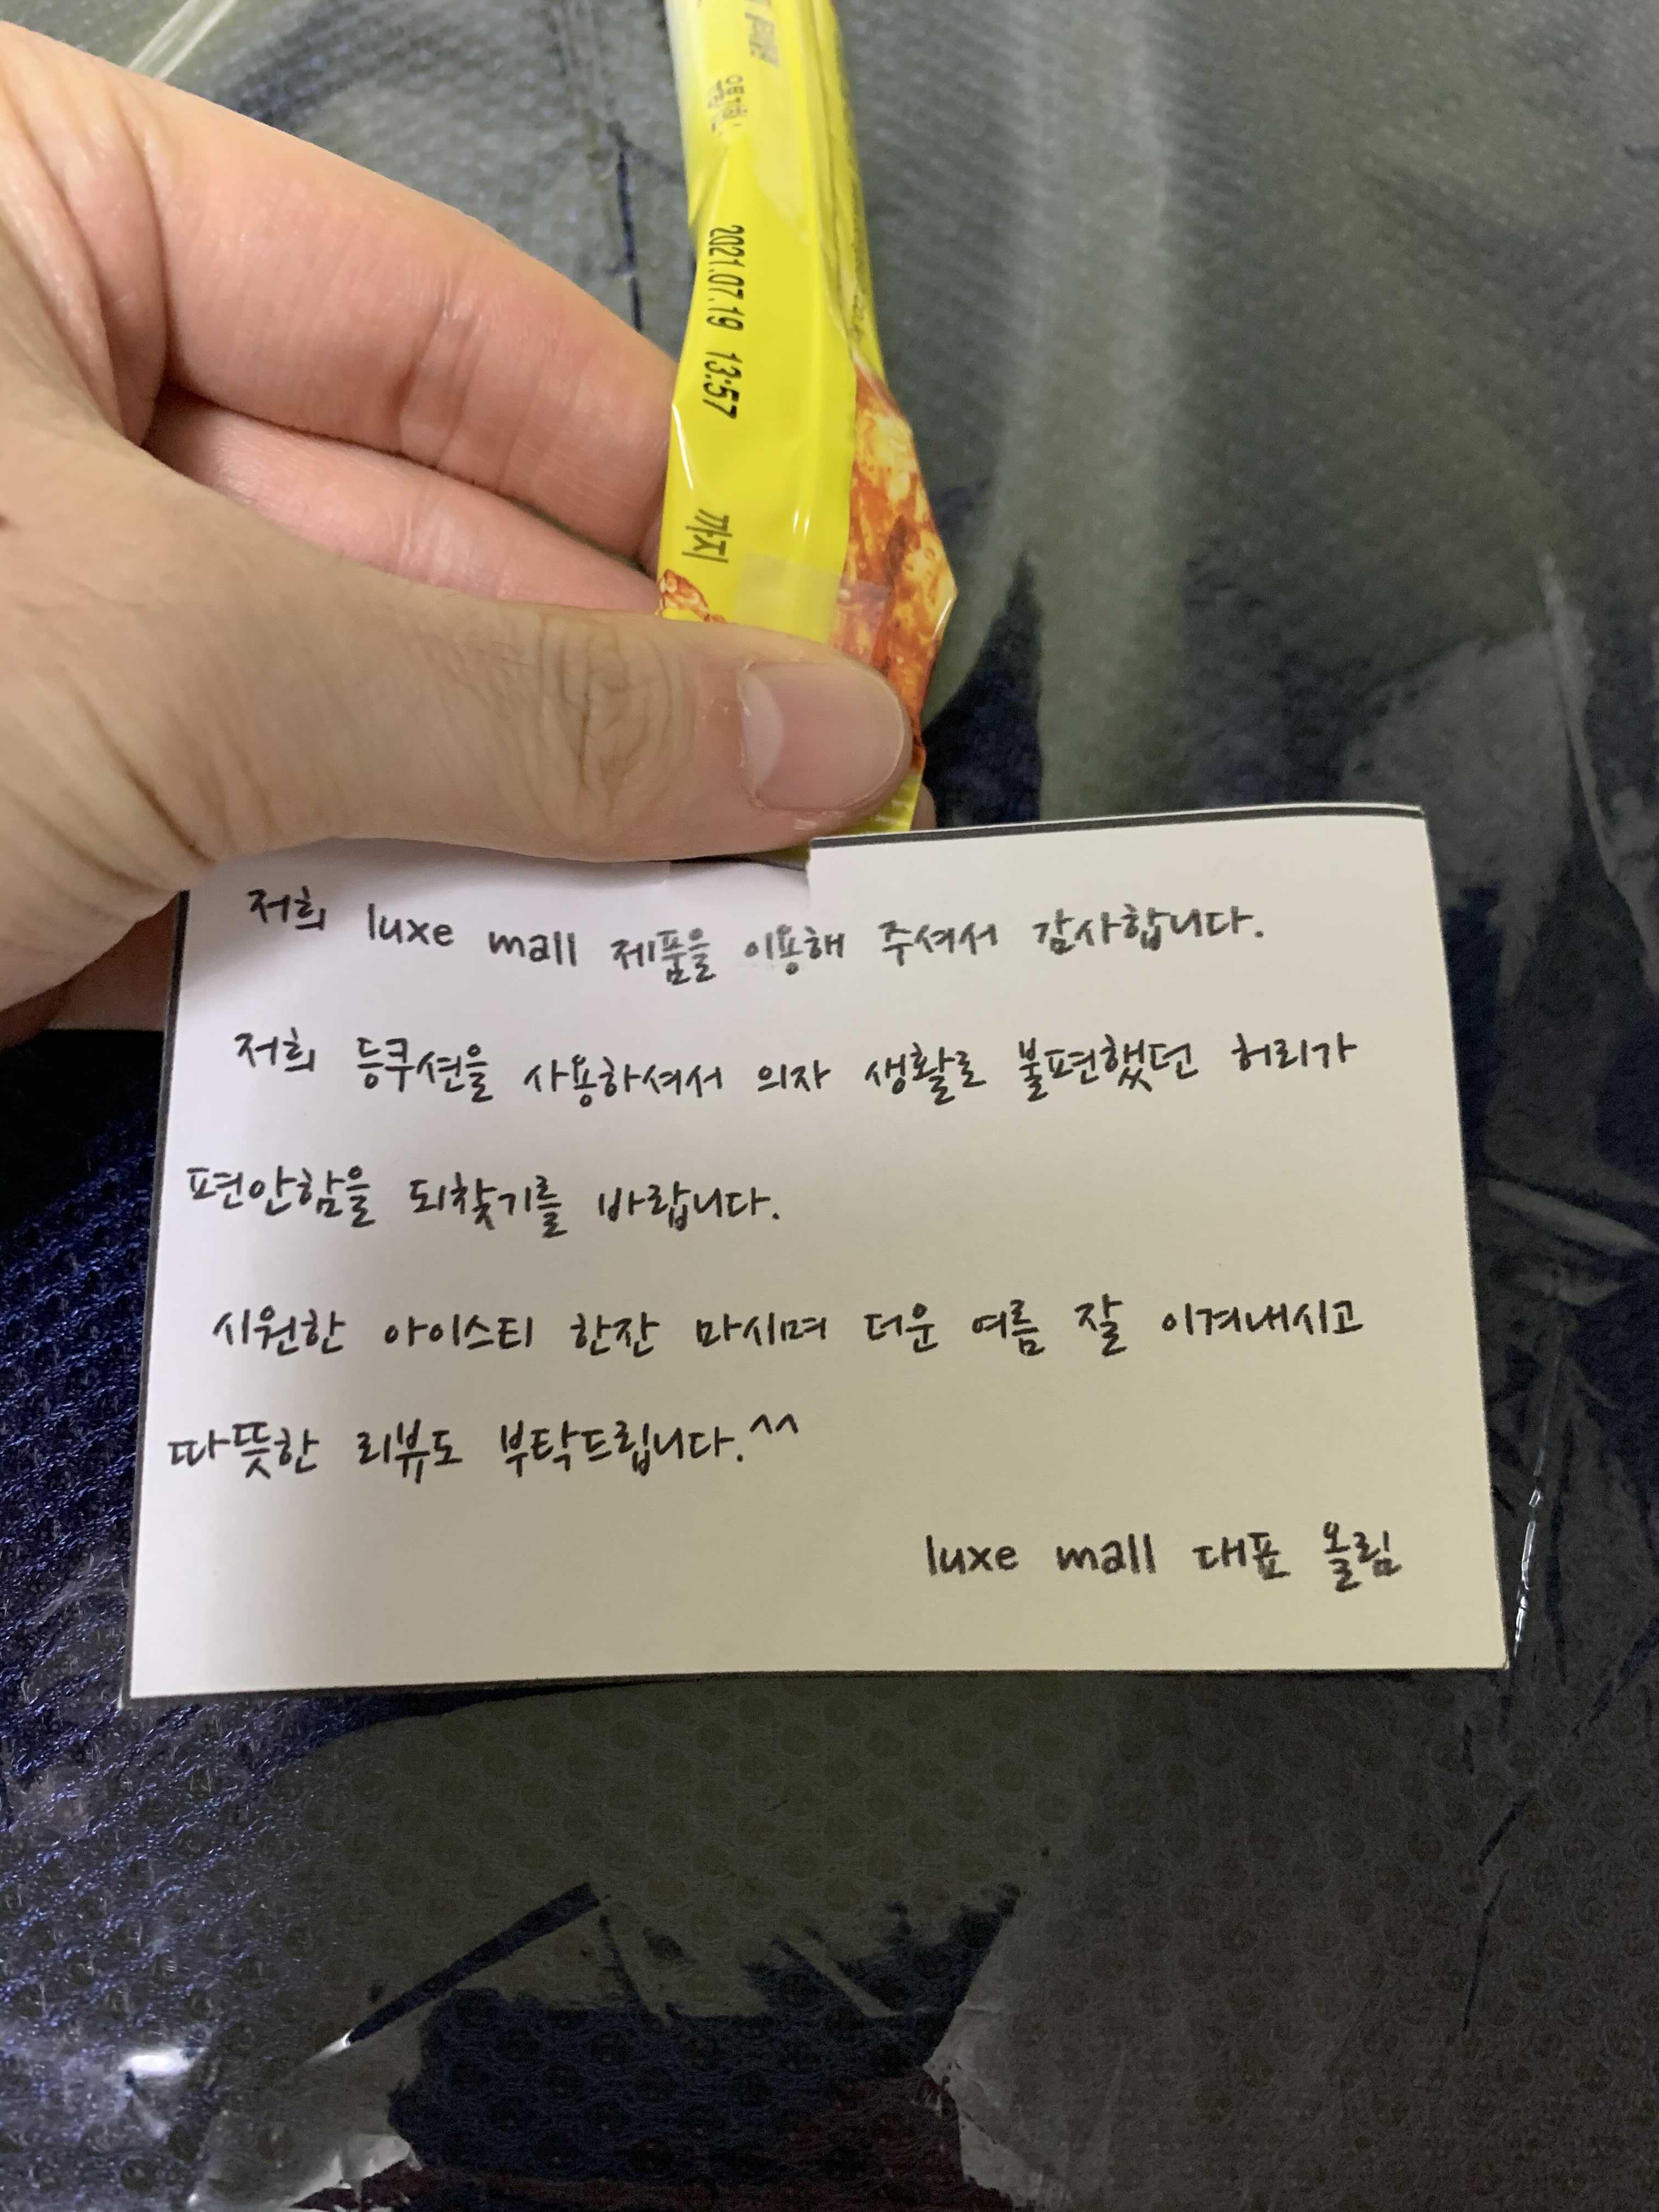 2021.07.19 13:57
까지
저희 luxe mall 제품을 이용해 주셔서 감사합니다.
저희 등쿠션을 사용하셔서 의자 생활로 불편했던 허리가
편안함을 되찾기를 바랍니다.
시원한 아이스티 한잔 마시며 더운 여름 잘 이겨내시고
따뜻한 리뷰도 부탁드립니다.^^
luxe mall 대표 올림